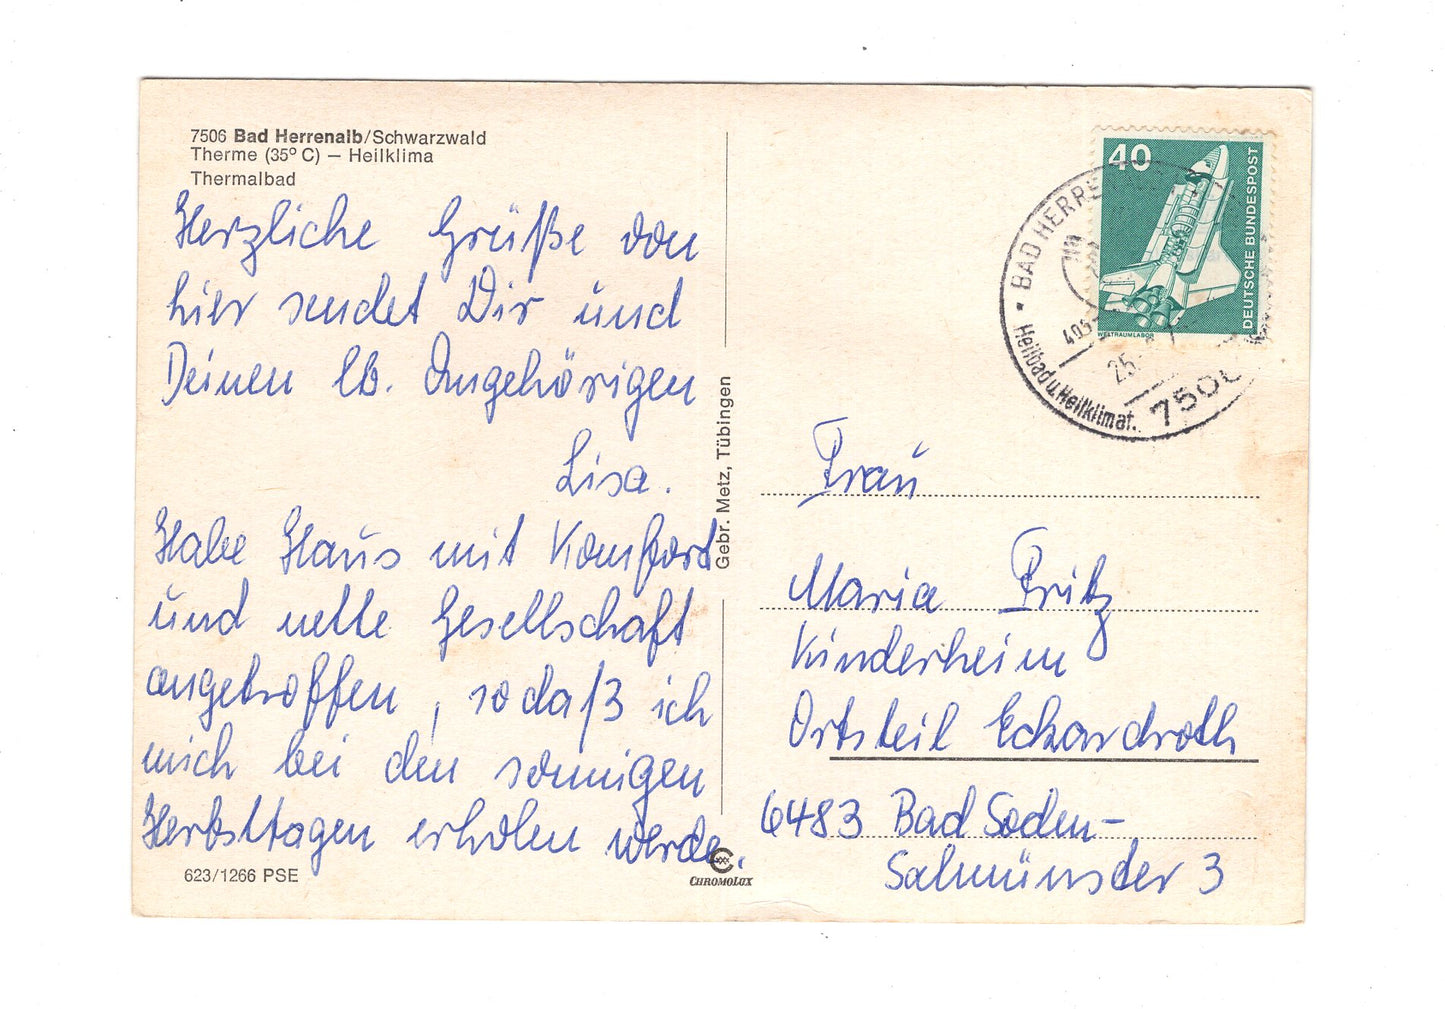 7506 Bad Herrenalb/Schwarzwald
Therme (35° C) — Heilklima
Thermalbad
Herzliche Grüße von
hier sendet Dir und
Deinen lb. Angehörigen
Lisa.
Habe Haus mit Komfort
und nette Gesellschaft
angetroffen, sodaß ich
mich bei den sonnigen
Herbsttagen erholen werde.
623/1266 PSE
Gebr. Metz, Tübingen
CHROMOLUX
40
DEUTSCHE BUNDESPOST
WELTRAUMLABOR
BAD HERRE
Heilbad u. Heilklimat.
25.
750
Frau
Maria Fritz
Kinderheim
Ortsteil Eckardroth
6483 Bad Soden-
Salmünster 3